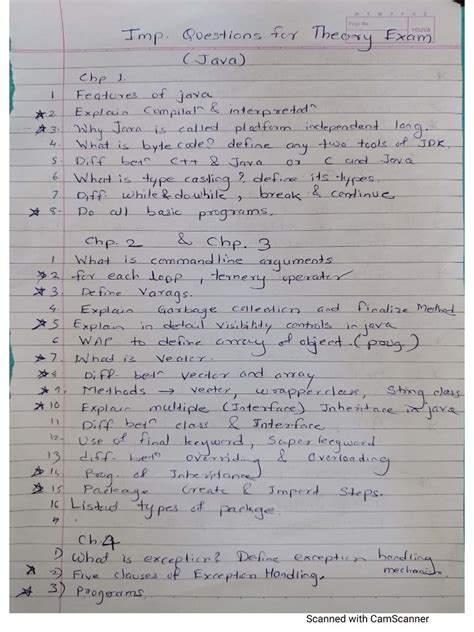 Imp. Questions for Theory Exam
(Java)
Chp 1.
1 Features of java
★2 Explain Compilatn & interpretatn
★3. Why Java is called platform independent lang.
4. What is byte code? define any two tools of JDK.
5. Diff betn C++ & Java or C and Java
6. What is type casting? define its types.
7 Diff. while & dowhile, break & continue
★ 8- Do all basic programs.
Chp. 2 & Chp. 3
1 What is commandline arguments
★2 for each loop, ternery operator
★3. Define Varags.
4. Explain Garbage collection and finalize Method
★5 Explain in detail visibility controls in java
6 WAP to define array of object. (prog.)
★7. What is Vector.
★8 Diff betn vector and array
★9. Methods → vector, wrapperclass, String class
★10 Explain multiple (Interface) Inheritace in java
11 Diff betn class & Interface.
12- Use of final keyword, Super keyword
13 diff. betn overriding & Overloading
★14 Prog. of Inheritance
★15 Package Create & Import Steps.
16 Listout types of package.
Ch. 4
1) What is exception? Define exception handling mechanism.
★ 2) Five clauses of Exception Handling.
★ 3) Programs
Scanned with CamScanner